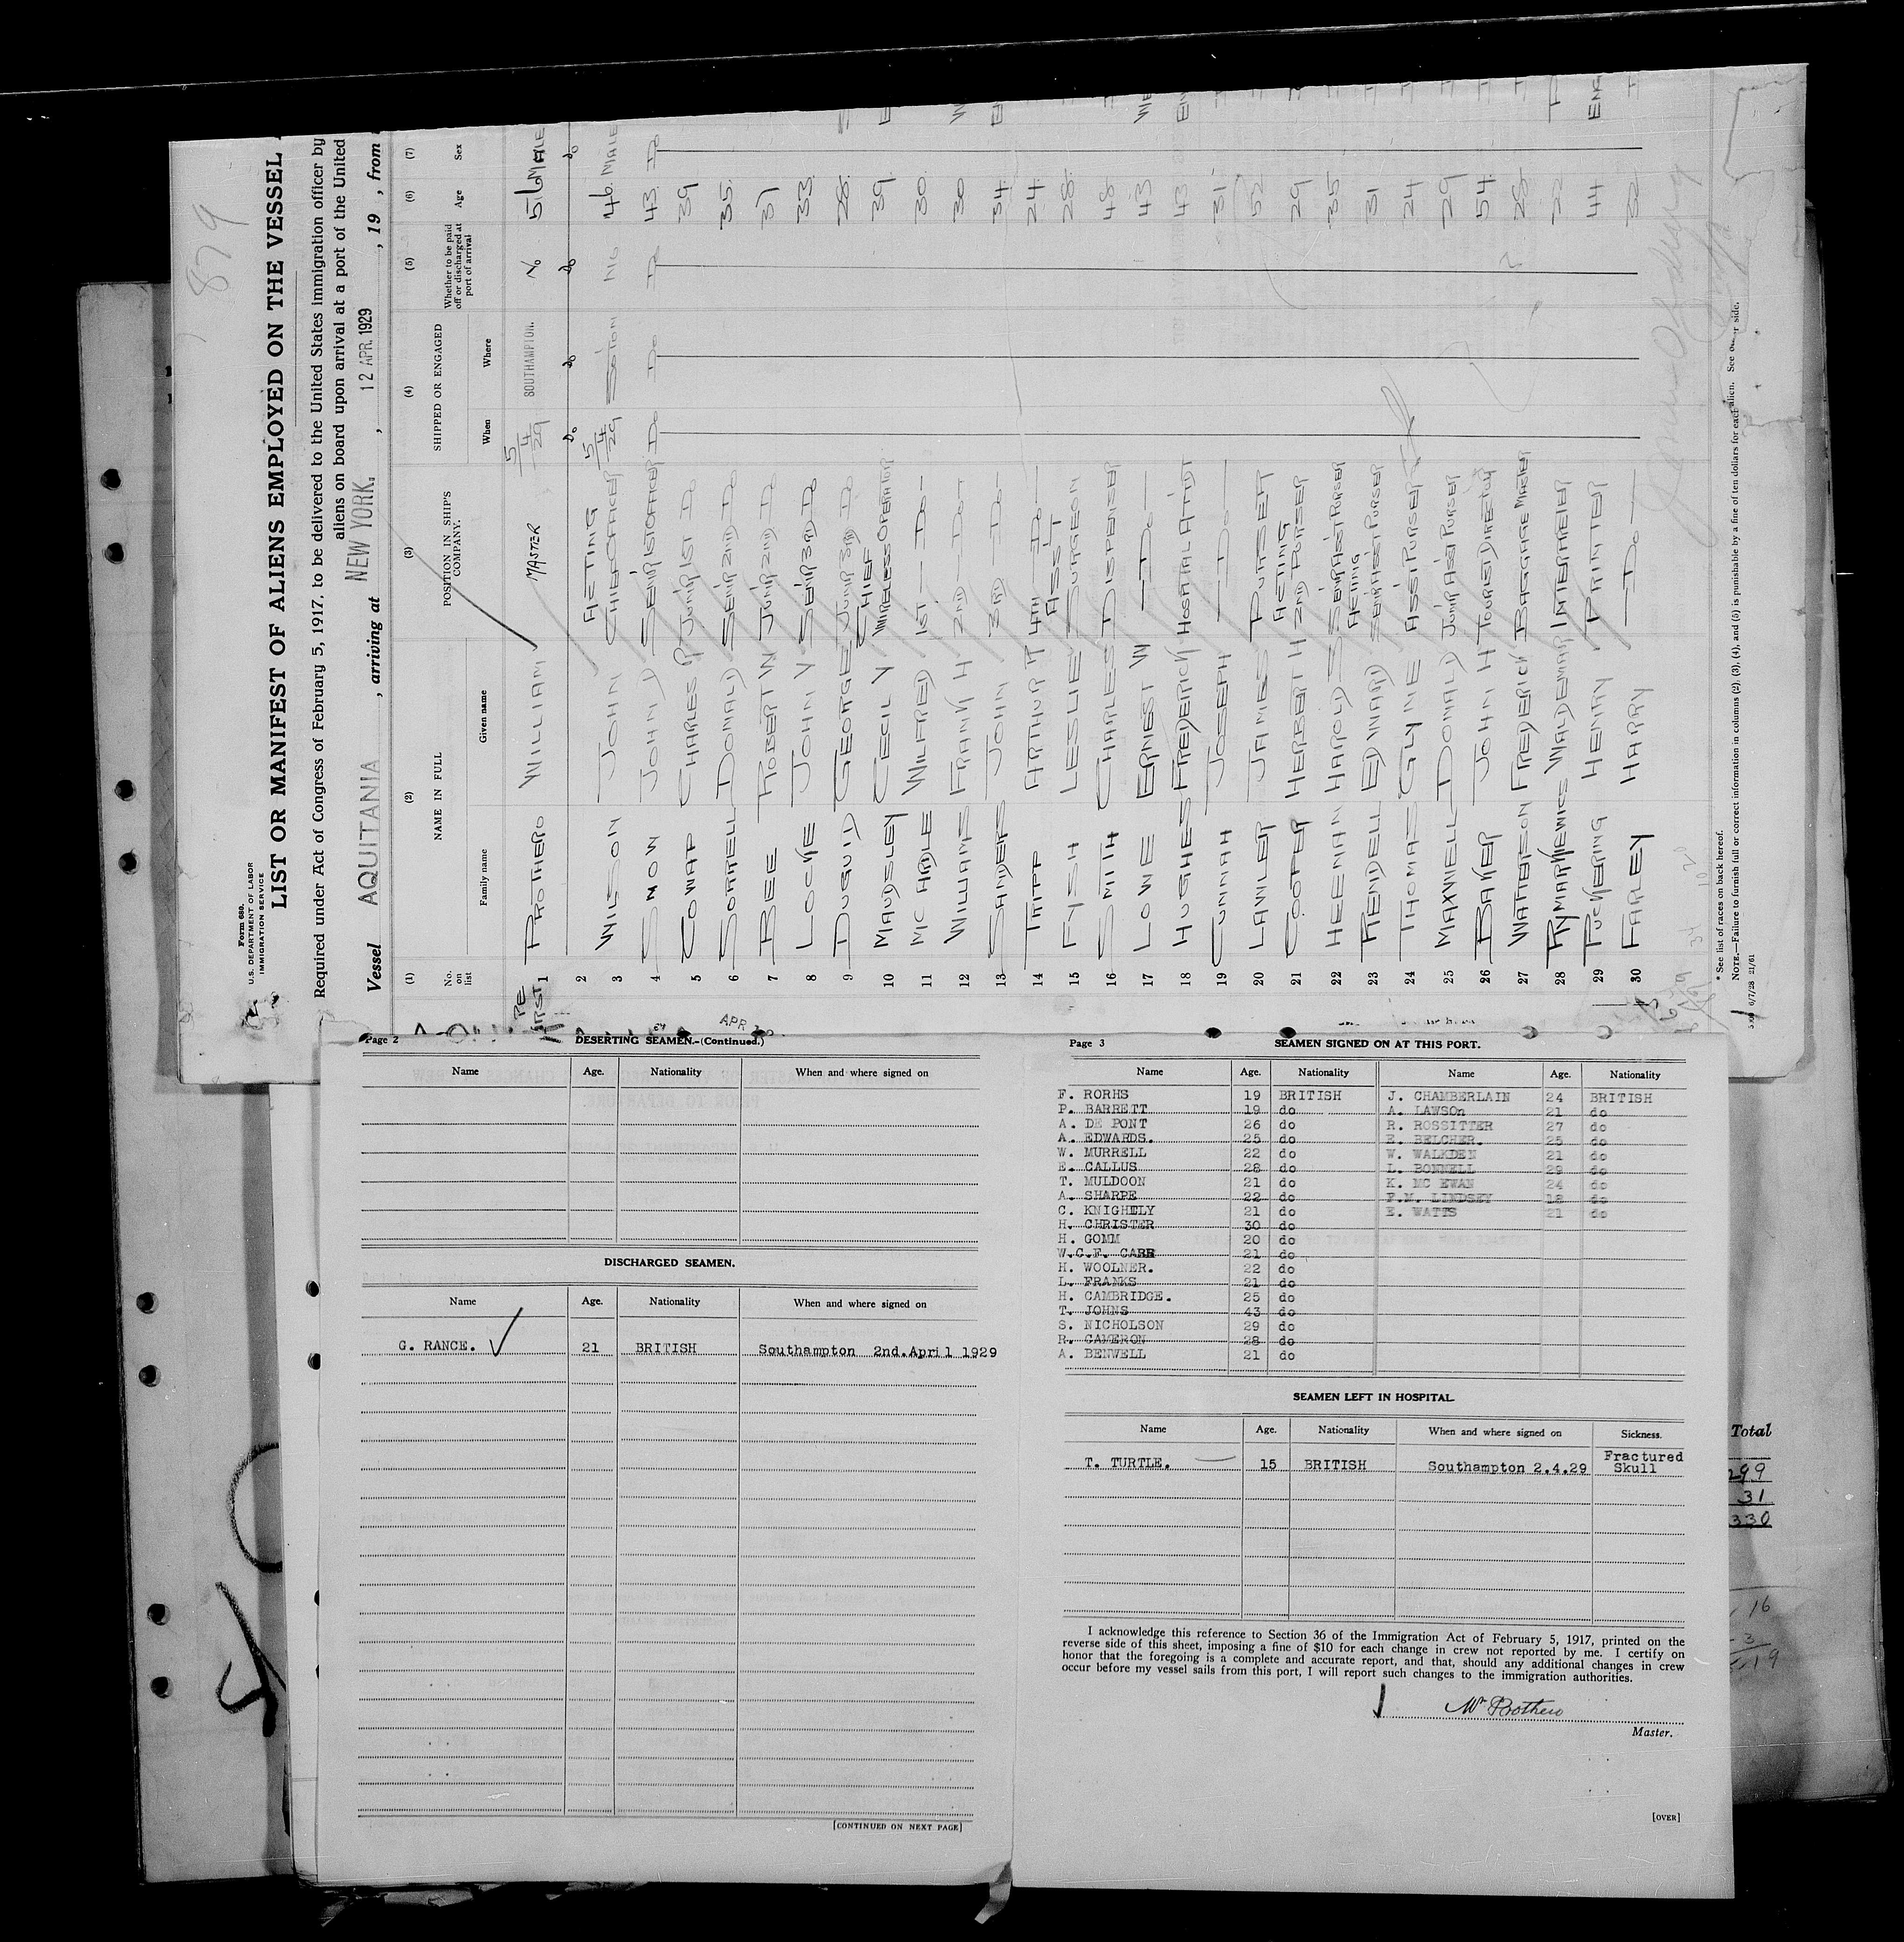 879
Form 680.
U.S. DEPARTMENT OF LABOR
IMMIGRATION SERVICE
LIST OR MANIFEST OF ALIENS EMPLOYED ON THE VESSEL
Required under Act of Congress of February 5, 1917, to be delivered to the United States immigration officer by
aliens on board upon arrival at a port of the United
Vessel AQUITANIA , arriving at NEW YORK. , 12 APR. 1929 , 19 , from
(1) (2) (3) (4) (5) (6) (7)
No. on list NAME IN FULL POSITION IN SHIP'S COMPANY. SHIPPED OR ENGAGED Whether to be paid off or discharged at port of arrival Age Sex
Family name Given name When Where
1 PROTHERO WILLIAM MASTER 5/4/29 SOUTHAMPTON. No 56 MALE
2 do do do do
3 WILSON JOHN ACTING CHIEF OFFICER 5/4/29 S'oton No 46 MALE
4 SNOW JOHN D SEN'R 1ST OFFICER Do Do Do 43 Do
5 COWAP CHARLES P JUN'R 1ST Do 39
6 SORRELL DONALD SEN'R 2ND Do 35
7 BEE ROBERT W JUN'R 2ND Do 37
8 LOCKE JOHN V SEN'R 3RD Do 33
9 DUGUID GEORGE JUN'R 3RD Do 28
10 MAUDSLEY CECIL V CHIEF WIRELESS OPERATOR 39
11 MC ARDLE WILFRED 1ST Do 30
12 WILLIAMS FRANK H 2ND Do 30
13 SANDERS JOHN 3RD Do 34
14 TRIPP ARTHUR H 4TH Do 24
15 FYSH LESLIE ASS'T SURGEON 28
16 SMITH CHARLES DISPENSER 48
17 LOWE ERNEST W Do 43
18 HUGHES FREDERICK HOSPITAL ATT'DT 43
19 CUNNAH JOSEPH Do 31
20 LAWLER JAMES PURSER 52
21 COOPER HERBERT H ACTING 2ND PURSER 29
22 HEENAN HAROLD S SEN'R ASS'T PURSER 35
23 RENDELL EDWARD ACTING SEN'R ASS'T PURSER 31
24 THOMAS GLYNNE ASS'T PURSER 24
25 MAXWELL DONALD JUN'R ASS'T PURSER 29
26 BAKER JOHN H TOURIST DIRECTOR 54
27 WATTERSON FREDERICK BAGGAGE MASTER 28
28 RYMARKIEWICZ WALDEMAR INTERPRETER 22
29 PUCKERING HENRY PRINTER 44
30 FARLEY HARRY Do 32
* See list of races on back hereof.
NOTE.—Failure to furnish full or correct information in columns (2), (3), (4), and (5) is punishable by a fine of ten dollars for each alien. See other side.
6/7/28 21/61
Page 2 DESERTING SEAMEN.-(Continued.)
Name Age. Nationality When and where signed on
DISCHARGED SEAMEN.
Name Age. Nationality When and where signed on
G. RANCE. 21 BRITISH Southampton 2nd.April 1929
[CONTINUED ON NEXT PAGE]
Page 3 SEAMEN SIGNED ON AT THIS PORT.
Name Age. Nationality Name Age. Nationality
F. RORHS 19 BRITISH J. CHAMBERLAIN 24 BRITISH
P. BARRETT 19 do A. LAWSOn 21 do
A. DE PONT 26 do R. ROSSITTER 27 do
A. EDWARDS. 25 do E. BELCHER. 25 do
W. MURRELL 22 do W. WALKDEN 21 do
E. CALLUS 28 do L. BONNELL 29 do
T. MULDOON 21 do K. MC EWAN 24 do
A. SHARPE 22 do F.M. LINDSEY 18 do
C. KNIGHTLY 21 do E. WATTS 21 do
H. CHRISTER 30 do
H. GOMM 20 do
W.C.F. CARR 21 do
H. WOOLNER. 22 do
L. FRANKS 21 do
H. CAMBRIDGE. 25 do
T. JOHNS 43 do
S. NICHOLSON 29 do
R. CAMERON 28 do
A. BENWELL 21 do
SEAMEN LEFT IN HOSPITAL
Name Age. Nationality When and where signed on Sickness.
T. TURTLE. 15 BRITISH Southampton 2.4.29 Fractured Skull
I acknowledge this reference to Section 36 of the Immigration Act of February 5, 1917, printed on the
reverse side of this sheet, imposing a fine of $10 for each change in crew not reported by me. I certify on
honor that the foregoing is a complete and accurate report, and that, should any additional changes in crew
occur before my vessel sails from this port, I will report such changes to the immigration authorities.
Wm Prothero
Master.
[OVER]
Total
299
31
330
16
3
19